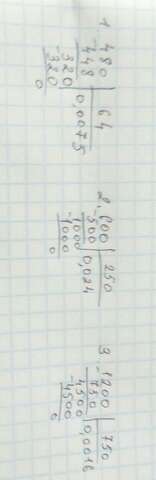 1. 480 | 64
-448 | 0,0075
320
-320
0
2. 600 | 250
-500 | 0,024
1000
-1000
0
3. 1200 | 750
-750 | 0,0016
4500
-4500
0